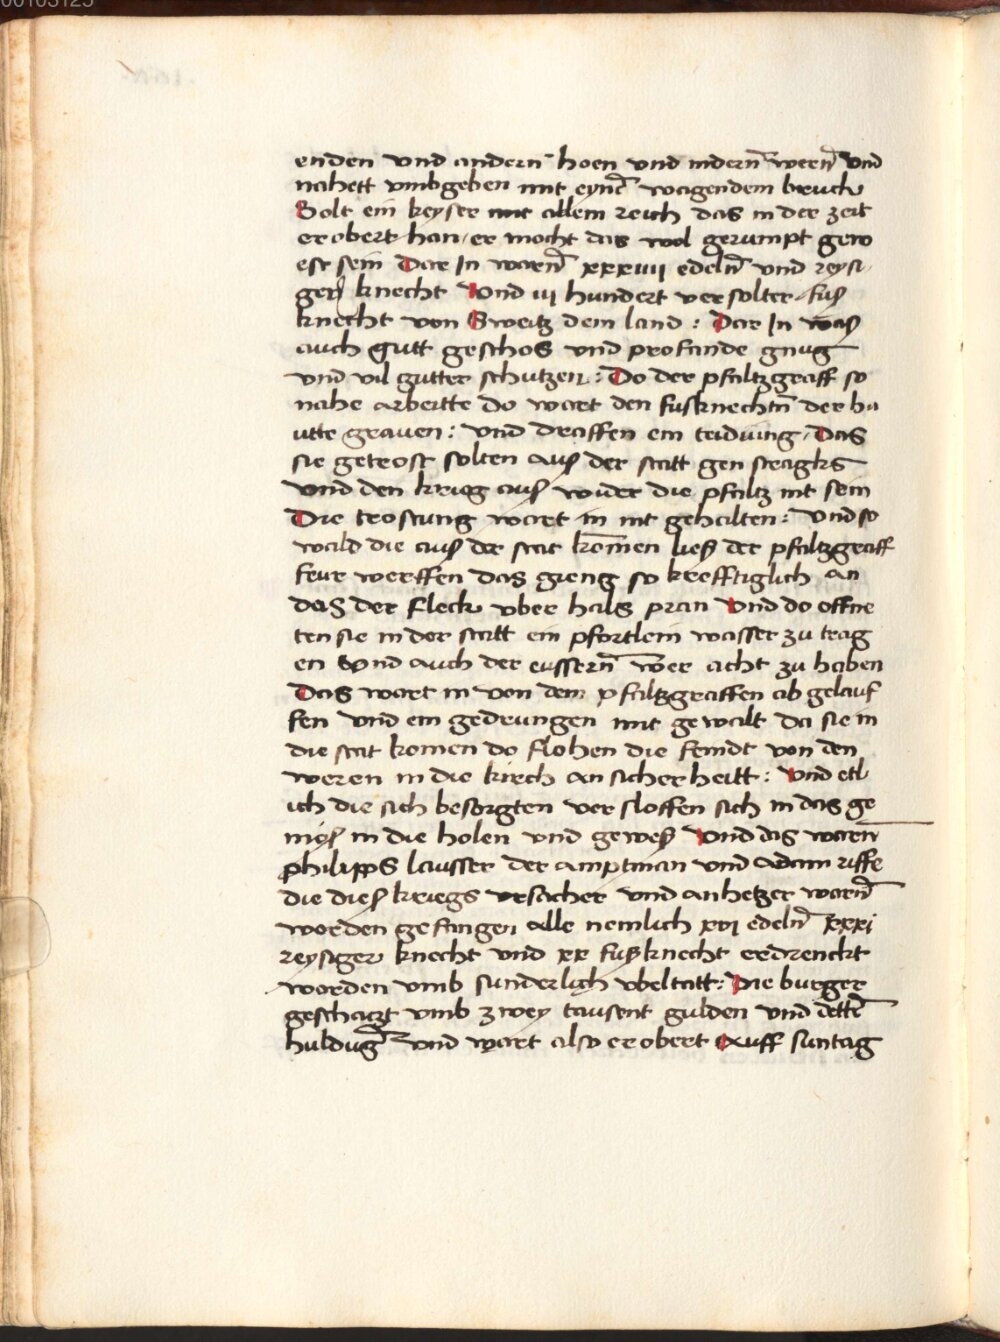 00103125
enden vnd andern hoen vnd indern̄ weern̄ vnd
nahett vmbgeben mit eynē wagendem bruch
Solt ein keyser mit allem reich das in der zeit
erobert han / er mocht das wol gerumpt gew
est sein Dar In warn̄ xxxviii edeln̄ vnd reysi
ger knecht Vnd iii hundert versolter fuß
knecht von Sweitz dem land : Dar In waß
auch gutt geschos vnd profande gnug
vnd vil gutter schutzen : Do der pfaltzgraff so
nahe arbeitte do wart den fusknechtn̄ der ha
utte grauen : vnd draffen ein teiduing / Das
sie getrost solten auß der statt gen stragks
vnd den krieg auß wider die pfaltz nit sein
Die trostung wart in nit gehalten : Vnd so
wald die auß der stat kom̄en ließ der pfaltzgraff
feur werffen das gieng so krefftiglich an
das der fleck vber hals pran Vnd do offne
ten sie in der statt ein pfortlein wasser zu trag
en Vnd auch der eussern̄ wer acht zu haben
Das wart in von dem pfaltzgraffen ab gelauf
fen vnd ein gedrungen mit gewalt da sie in
die stat komen do flohen die feindt von den
weren in die kirch an sicherheitt : Vnd etl
ich die sich besorgten versloffen sich in das ge
mos in die holen vnd geweß Vnd das warn̄
philipps lausser der amptman vnd adam riffe
die dieß kriegs vrsacher vnd anhetzer warn̄
worden gefangen alle nemlich xvi edeln̄ xxxi
reysiger knecht vnd xx fußknecht erdrenckt
worden vmb sunderlich vbeltatt : Die burger
geschatzt vmb zwey tausent gulden vnd dettē
huldūg vnd wart also erobert Auff suntag